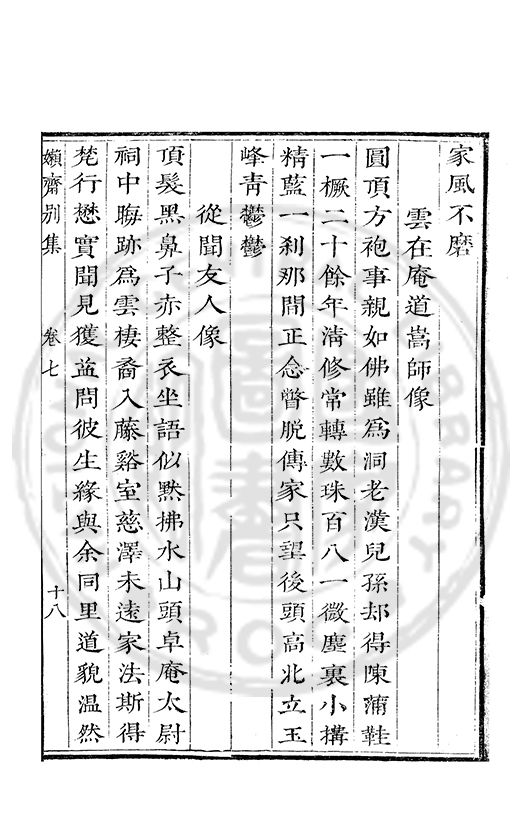 家風不磨
雲在庵道嵩師像
圓頂方袍事親如佛雖爲洞老漢兒孫却得陳蒲鞋
一橛二十餘年清修常轉數珠百八一微塵裏小搆
精藍一刹那間正念瞥脫傳家只望後頭高北立玉
峰青鬱鬱
從聞友人像
頂髮黑鼻子赤整衣坐語似默拂水山頭卓庵太尉
祠中晦跡爲雲棲裔入藤谿室慈澤未遠家法斯得
梵行懋實聞見獲益問彼生緣與余同里道貌溫然
嬾齋別集
卷七
十八